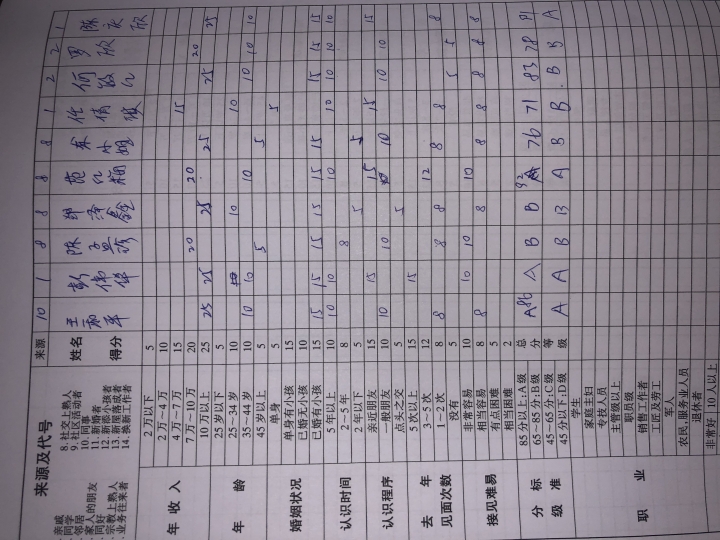 来源及代号
亲戚 8.社交上熟人
同学 9.社区活动者
邻居 10.同事
家人的朋友 11.新婚者
同好 12.新添小孩者
宗教上熟人 13.新屋落成者
业务往来者 14.换新工作者
来源 10 1 8 8 8 8 1 2 2 1
姓名
得分
年收入
2万以下 5
2万~4万 10
4万~7万 15 15
7万~10万 20 20 20 20
10万以上 25 25 25 25 25 25 25
年龄
25岁以下 5
25~34岁 10 10 10
35~44岁 10 10 10 10 10 10 10
45岁以上 5 5 5
婚姻状况
单身 5 5
单身有小孩 15
已婚无小孩 10
已婚有小孩 15 15 15 15 15 15 15 15 15 15
认识时间
5年以上 10 10 10 10 10 10 10 10
2~5年 8 8
2年以下 5 5 5
认识程序
亲近朋友 15 15 15 15 15
一般朋友 10 10 10 10 10 10
点头之交 5 5
去年见面次数
5次以上 15 15
3~5次 12 12
1~2次 8 8 8 8 8 8 8
没有 5 5 5
接见难易
非常容易 10 10 10 10
相当容易 8 8 8 8 8 8 8 8
有点困难 5
相当困难 2
分级标准
85分以上:A级 总
65~85分:B级 分
45~65分:C级 等
45分以下:D级 级
A86 A B B 92 76 71 83 78 91
A A B B A B B B B A
职业
学生
家庭主妇
专技人员
主管级以上
职员级
销售工作者
工匠及劳工
军人
农民、服务业人员
退休者
非常好 10人以上